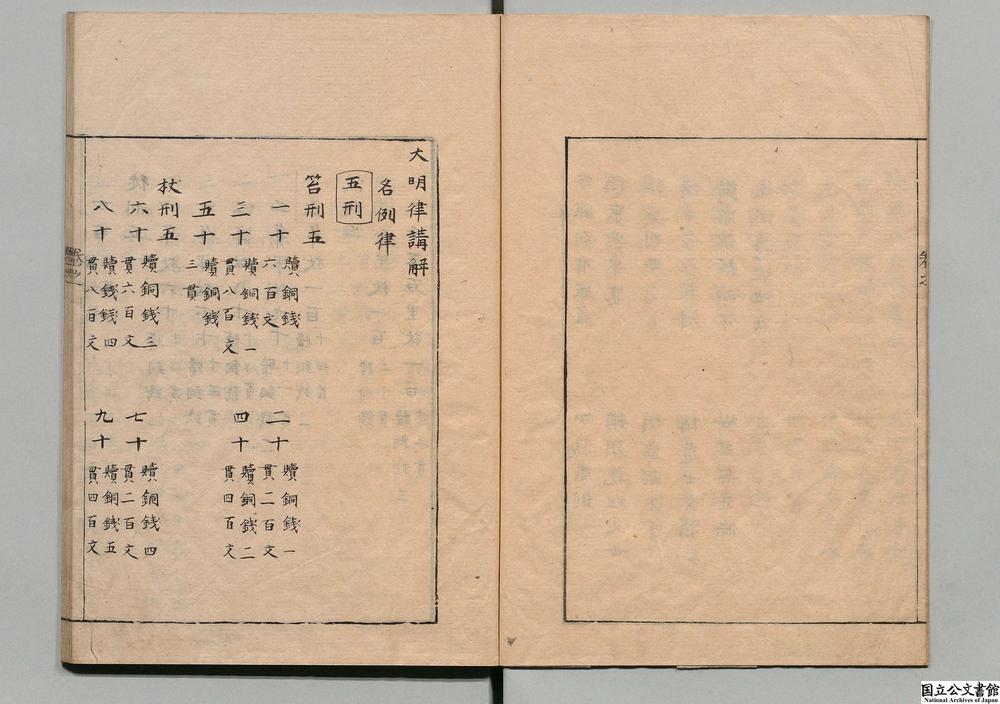 大明律講解
名例律
五刑
笞刑五
一十 贖銅錢六百文 二十 贖銅錢一貫二百文
三十 贖銅錢一貫八百文 四十 贖銅錢二貫四百文
五十 贖銅錢三貫
杖刑五
六十 贖銅錢三貫六百文 七十 贖銅錢四貫二百文
八十 贖錢錢四貫八百文 九十 贖銅錢五貫四百文
国立公文書館
National Archives of Japan